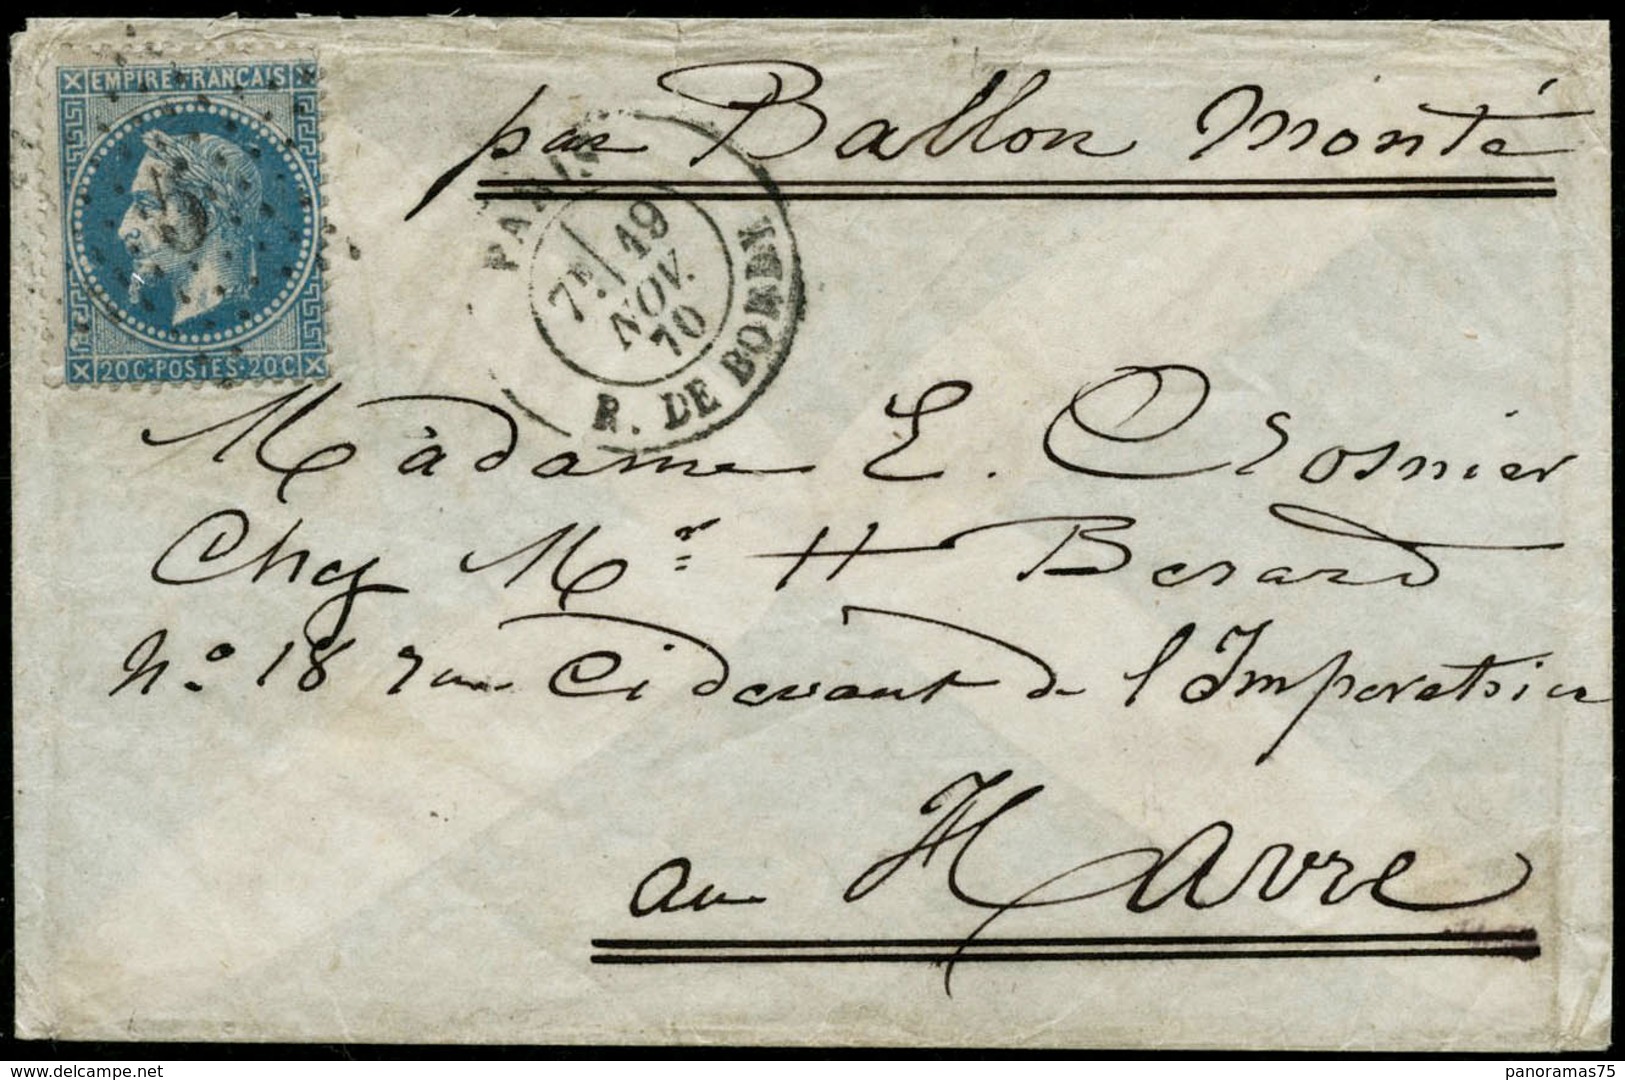 EMPIRE FRANCAIS
5
20C·POSTES·20C
par Ballon monté
PARIS
7E 19
NOV.
70
R. DE BONDY
Madame E. Closnier
Chez Mr H Berard
No 18 rue Ci devant de l'Imperatrice
au Havre
delcampe.net
panoramas75